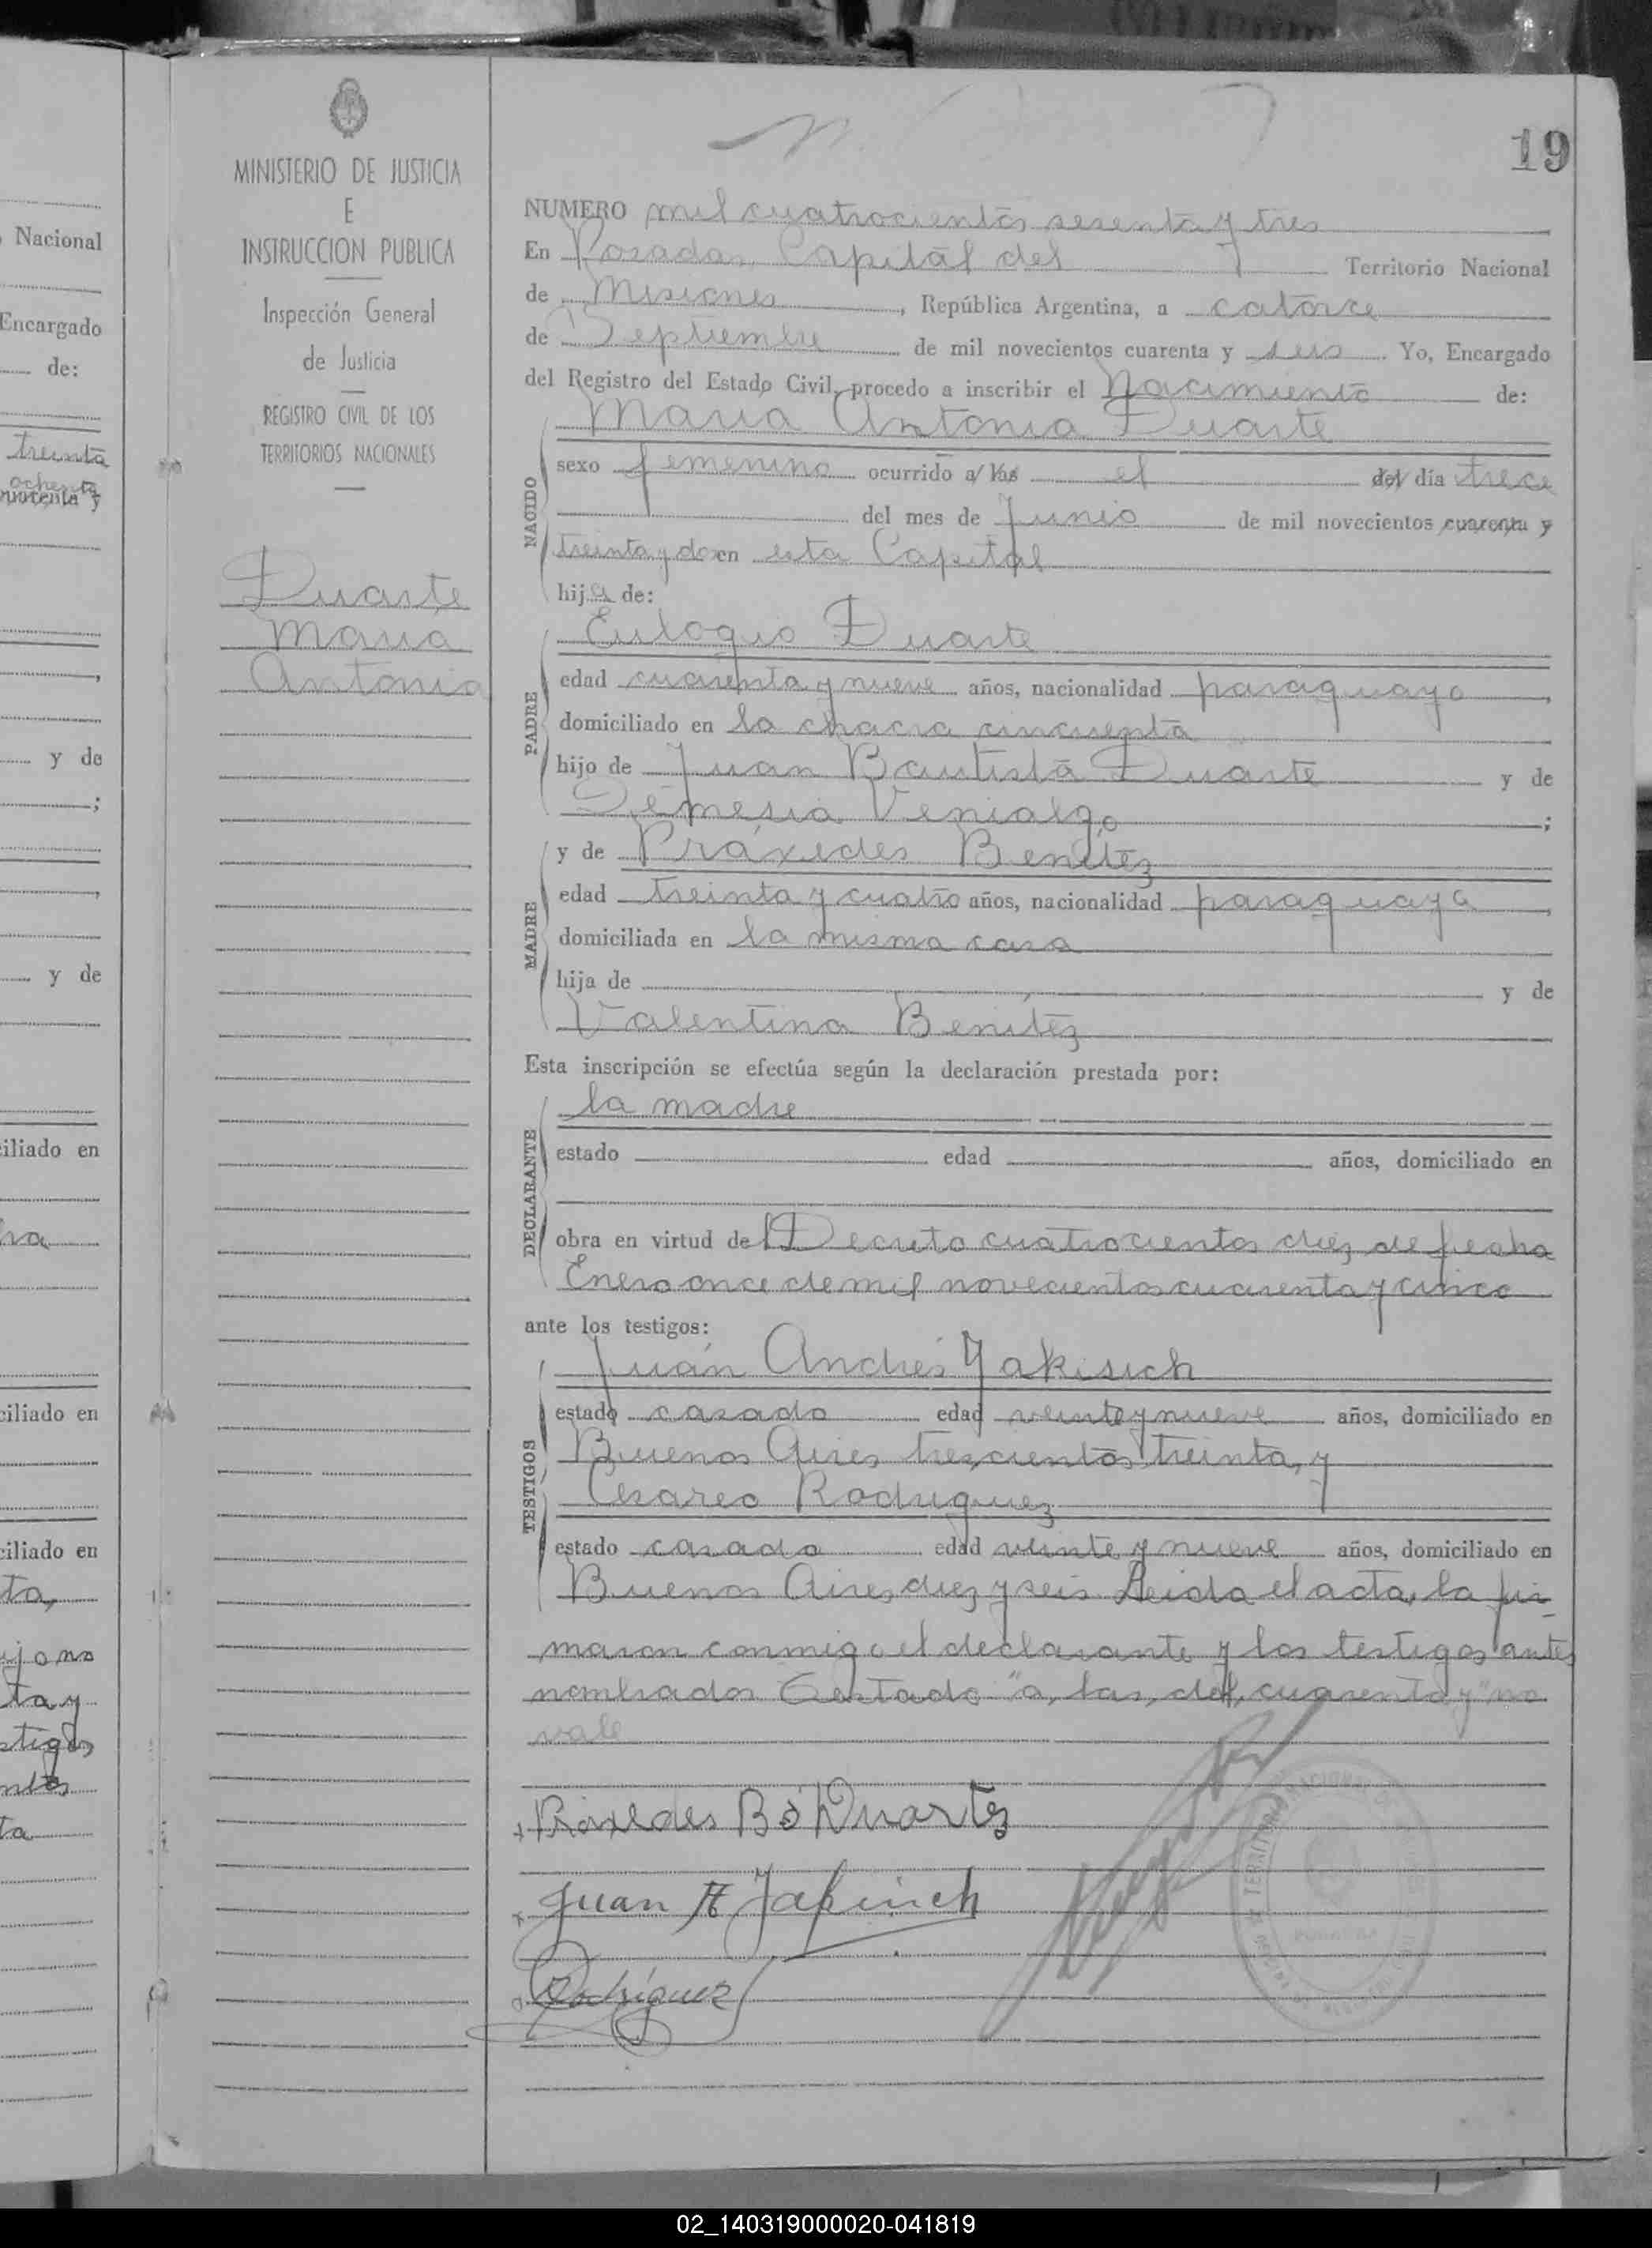 19
MINISTERIO DE JUSTICIA
E
INSTRUCCION PUBLICA
Inspección General
de Justicia
REGISTRO CIVIL DE LOS
TERRITORIOS NACIONALES
Duarte
Maria
Antonia
NUMERO mil cuatrocientos sesenta y tres
En Posadas, Capital del Territorio Nacional
de Misiones, República Argentina, a catorce
de Septiembre de mil novecientos cuarenta y seis. Yo, Encargado
del Registro del Estado Civil, procedo a inscribir el Nacimiento de:
NACIDO
Maria Antonia Duarte
sexo femenino ocurrido a las el del día trece
del mes de Junio de mil novecientos cuarenta y
treinta y dos en esta Capital
hija de:
PADRE
Eulogio Duarte
edad cuarenta y nueve años, nacionalidad paraguayo,
domiciliado en la chacra cincuenta
hijo de Juan Bautista Duarte y de
Semesia Venialgo;
MADRE
y de Práxedes Benitez
edad treinta y cuatro años, nacionalidad paraguaya,
domiciliada en la misma casa
hija de y de
Valentina Benitez
Esta inscripción se efectúa según la declaración prestada por:
DECLARANTE
la madre
estado edad años, domiciliado en
obra en virtud del Decreto cuatrocientos diez de fecha
Enero once de mil novecientos cuarenta y cinco
ante los testigos:
TESTIGOS
Juan Andrés Yakisich
estado casado edad veinte y nueve años, domiciliado en
Buenos Aires trescientos treinta, y
Cesareo Rodriguez
estado casado edad veinte y nueve años, domiciliado en
Buenos Aires diez y seis Leida el acta, la fir-
maron conmigo el declarante y los testigos antes
nombrados Testado "a, las, del, cuarenta y" no
vale
Práxedes B. d Duarte
Juan A Yakisich
Rodriguez
Nacional
Encargado
de:
treinta
ochenta
y
y de
;
y de
ciliado en
ciliado en
ciliado en
ta,
ta y
ta
02_140319000020-041819